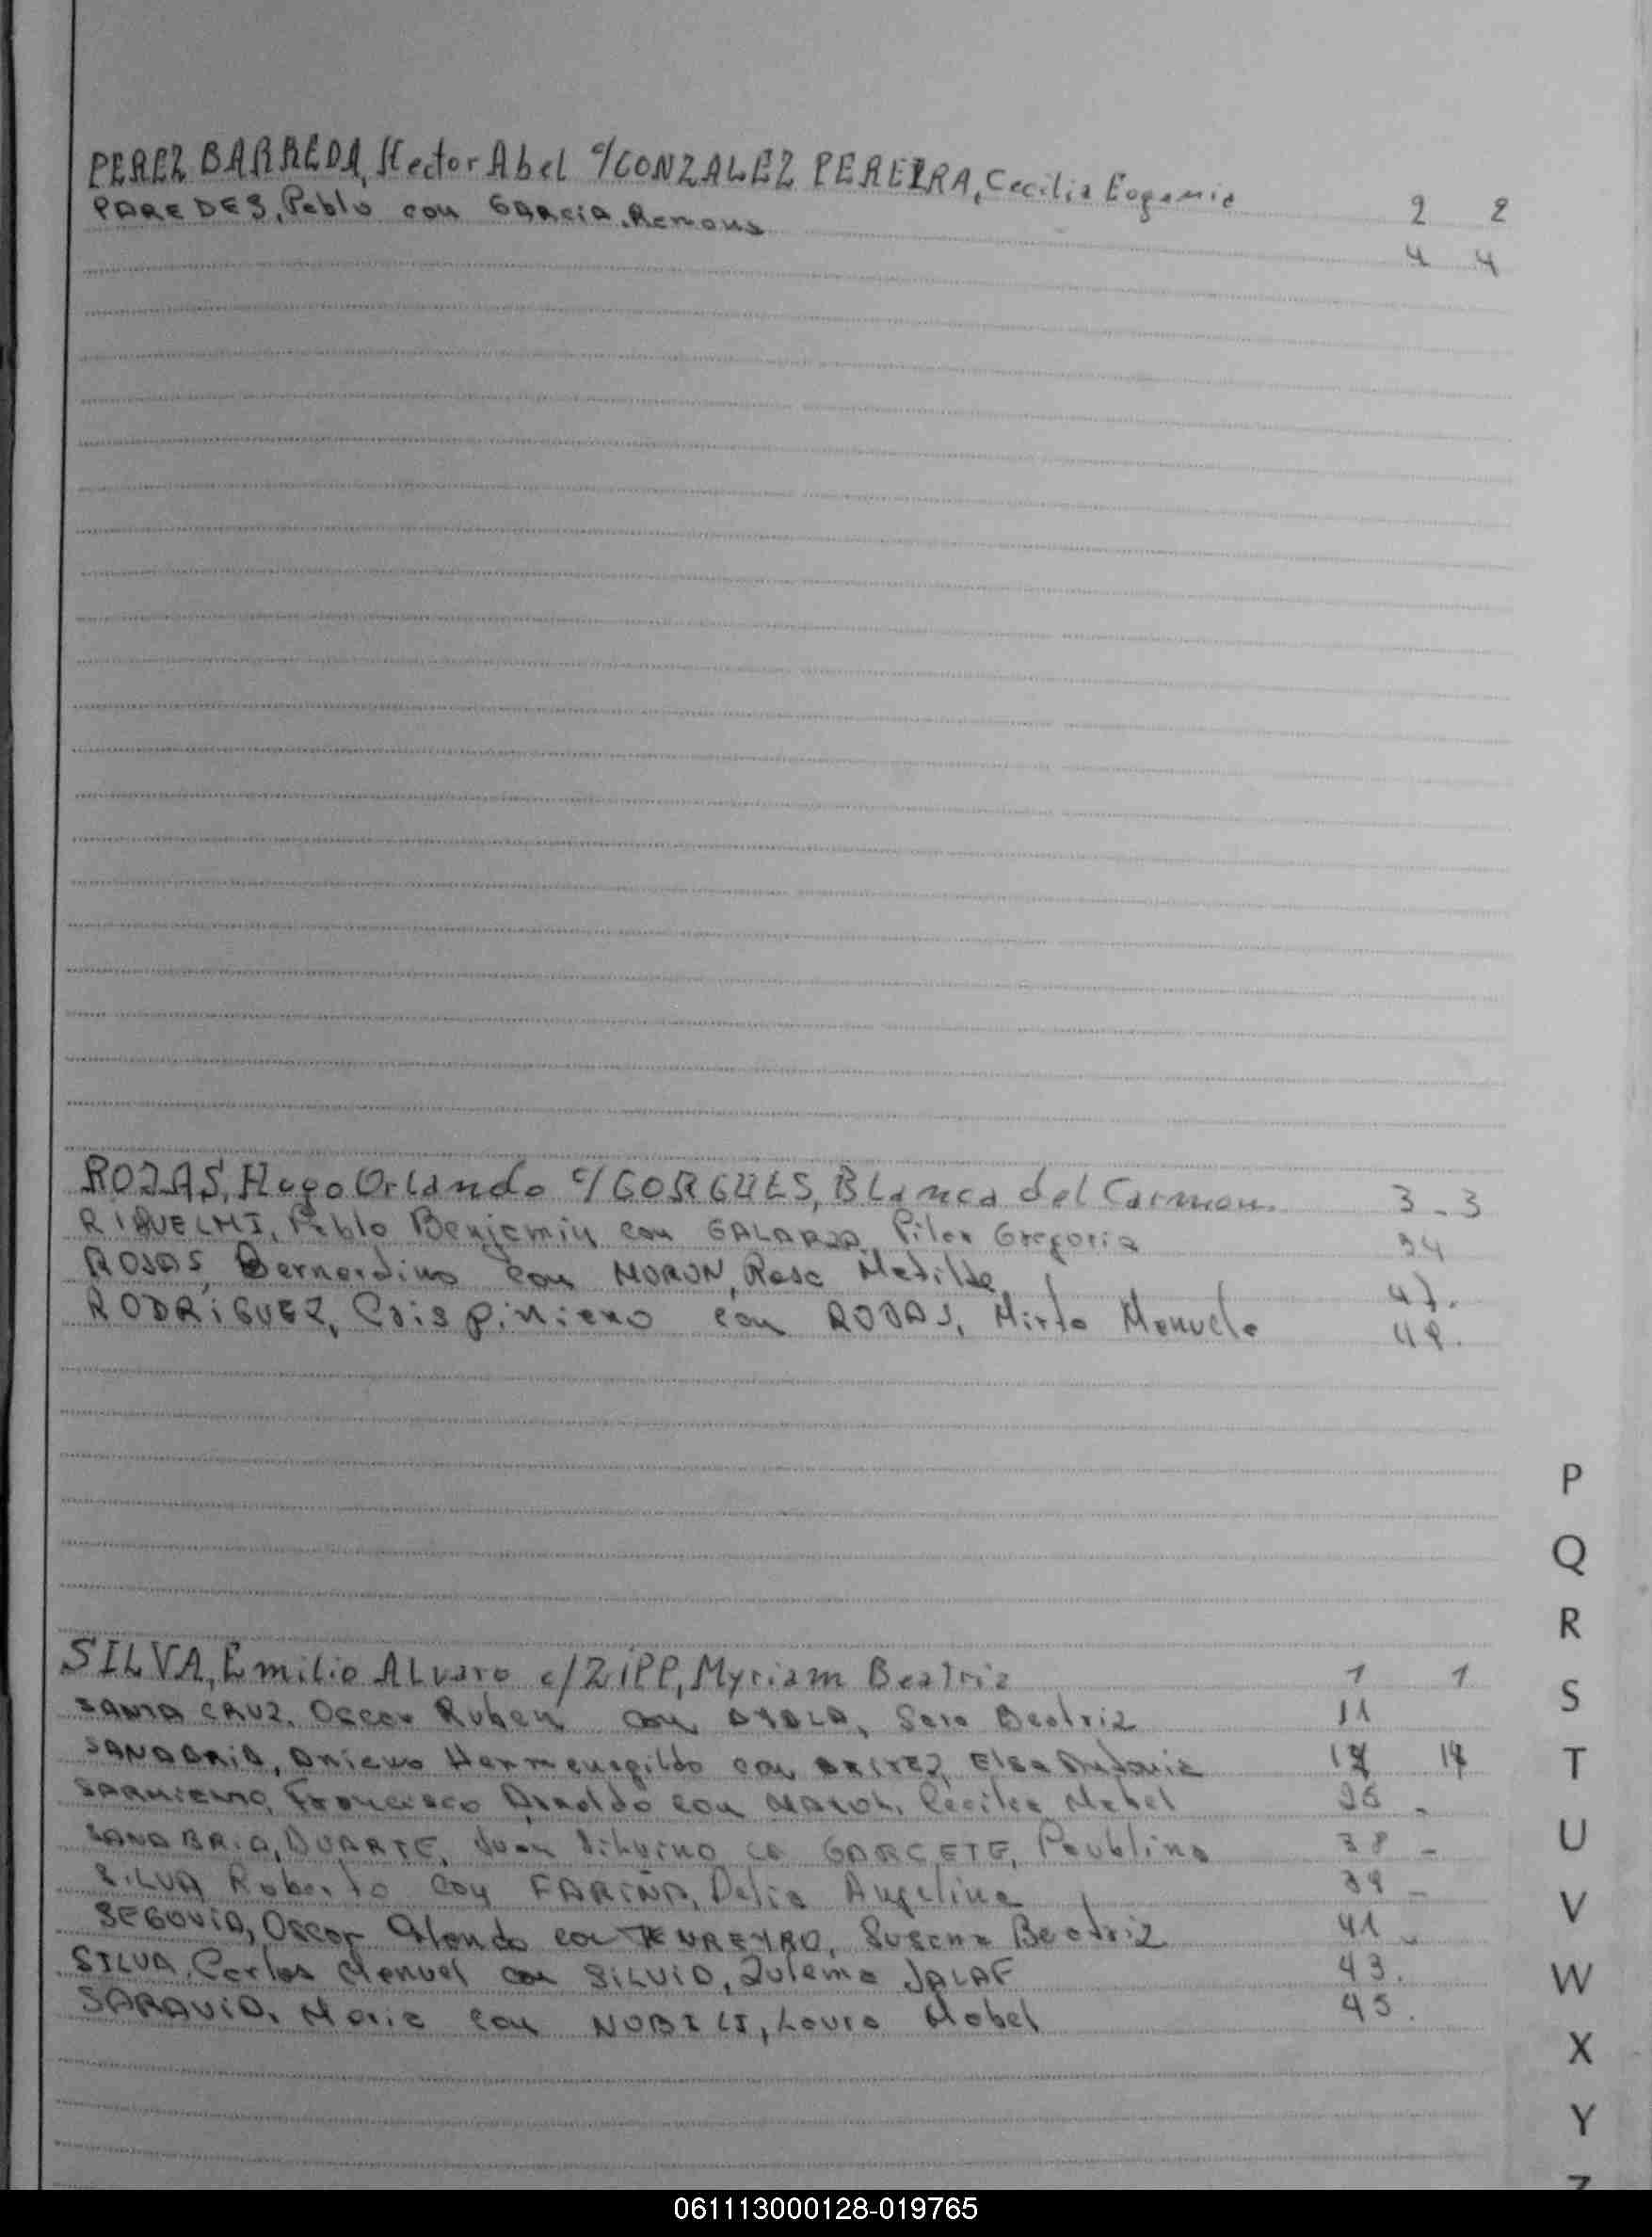 PEREZ BARREDA, Hector Abel c/GONZALEZ PEREIRA, Cecilia Eugenia 2 2
PAREDES, Pablo con GARCIA, Ramona 4 4
ROJAS, Hugo Orlando c/GORGUES, Blanca del Carmen. 3 - 3
RIQUELMI, Pablo Benjamin con GALARZA, Pilar Gregoria 34
ROJAS, Bernardino con MORON, Rosa Matilde 47.
RODRÍGUEZ, Crispiniano con ROJAS, Mirta Manuela 48.
SILVA, Emilio ALvaro c/ZIPP, Myriam Beatriz 1 1
SANTA CRUZ, Oscar Ruben con AYALA, Sara Beatriz 11
SANABRIA, Hermenegildo con BRITEZ, Elsa Antonia
SARMIENTO, Francisco Arnoldo con Cecilia Mabel
SANABRIA, DUARTE, Juan Silvino co GARCETE, Paublina 38 -
SILVA Roberto con FARIÑA, Delia Angelina 39 -
SEGOVIA, Oscar Orlando con TENREYRO, Susana Beatriz 41 -
SILVA, Carlos Manuel con SILVIO, Zulema JALAF 43.
SARAVIA, Mario con NOBILI, Laura Mabel 45.
P
Q
R
S
T
U
V
W
X
Y
Z
061113000128-019765